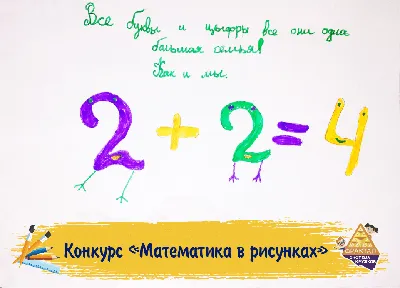 Все буквы и цыфры все они одна
большая семья!
Как и мы.
2 + 2 = 4
Конкурс «Математика в рисунках»